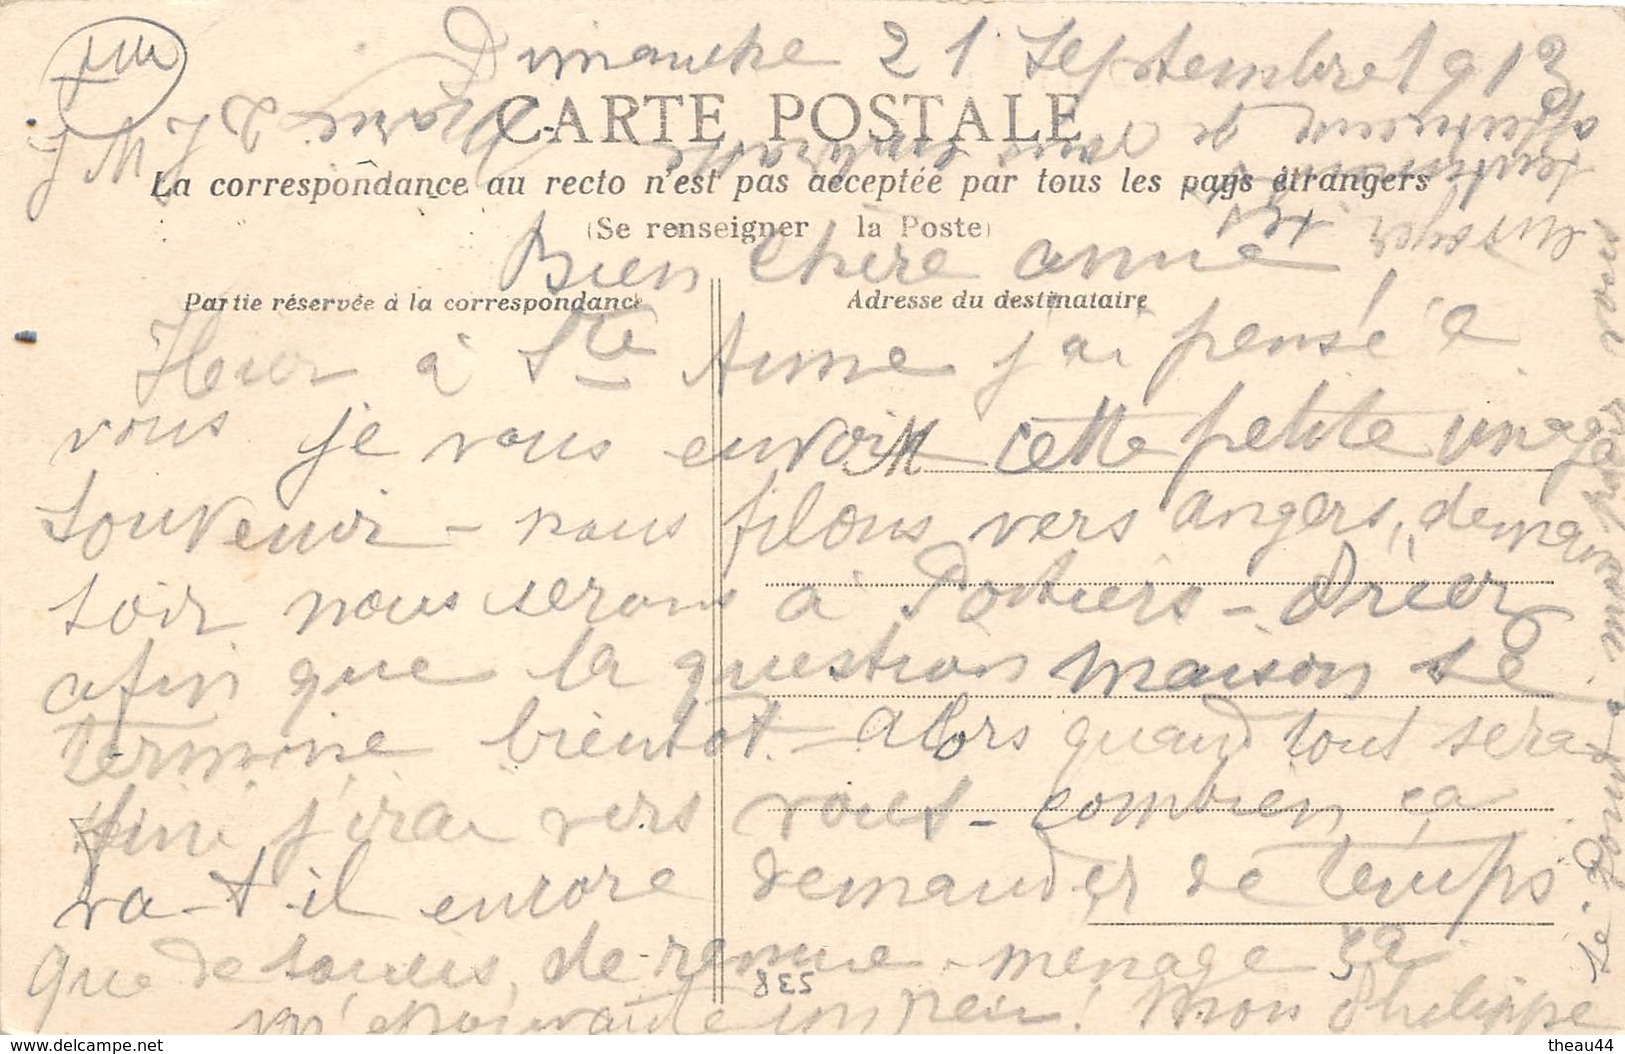 Dimanche 21 Septembre 1913
J M J
CARTE POSTALE
La correspondance au recto n'est pas acceptée par tous les pays étrangers
(Se renseigner la Poste)
Bien chère amie !
Partie réservée à la correspondance
Adresse du destinataire
Hier à Ste Anne j'ai pensé à
vous je vous envoi cette petite image
souvenir - nous filons vers angers, demain
soir nous serons à Poitiers - Priez
afin que la question maison se
termine bientot - alors quand tout sera
fini j'irai vers vous - combien ça
va-t-il encore demander de temps
que de soucis, de remue-menage ça
m'épouvante un peu ! Mon Philippe
se
pour
envoyer
affectueux
de
vous embrasse
853
delcampe.net
theau44